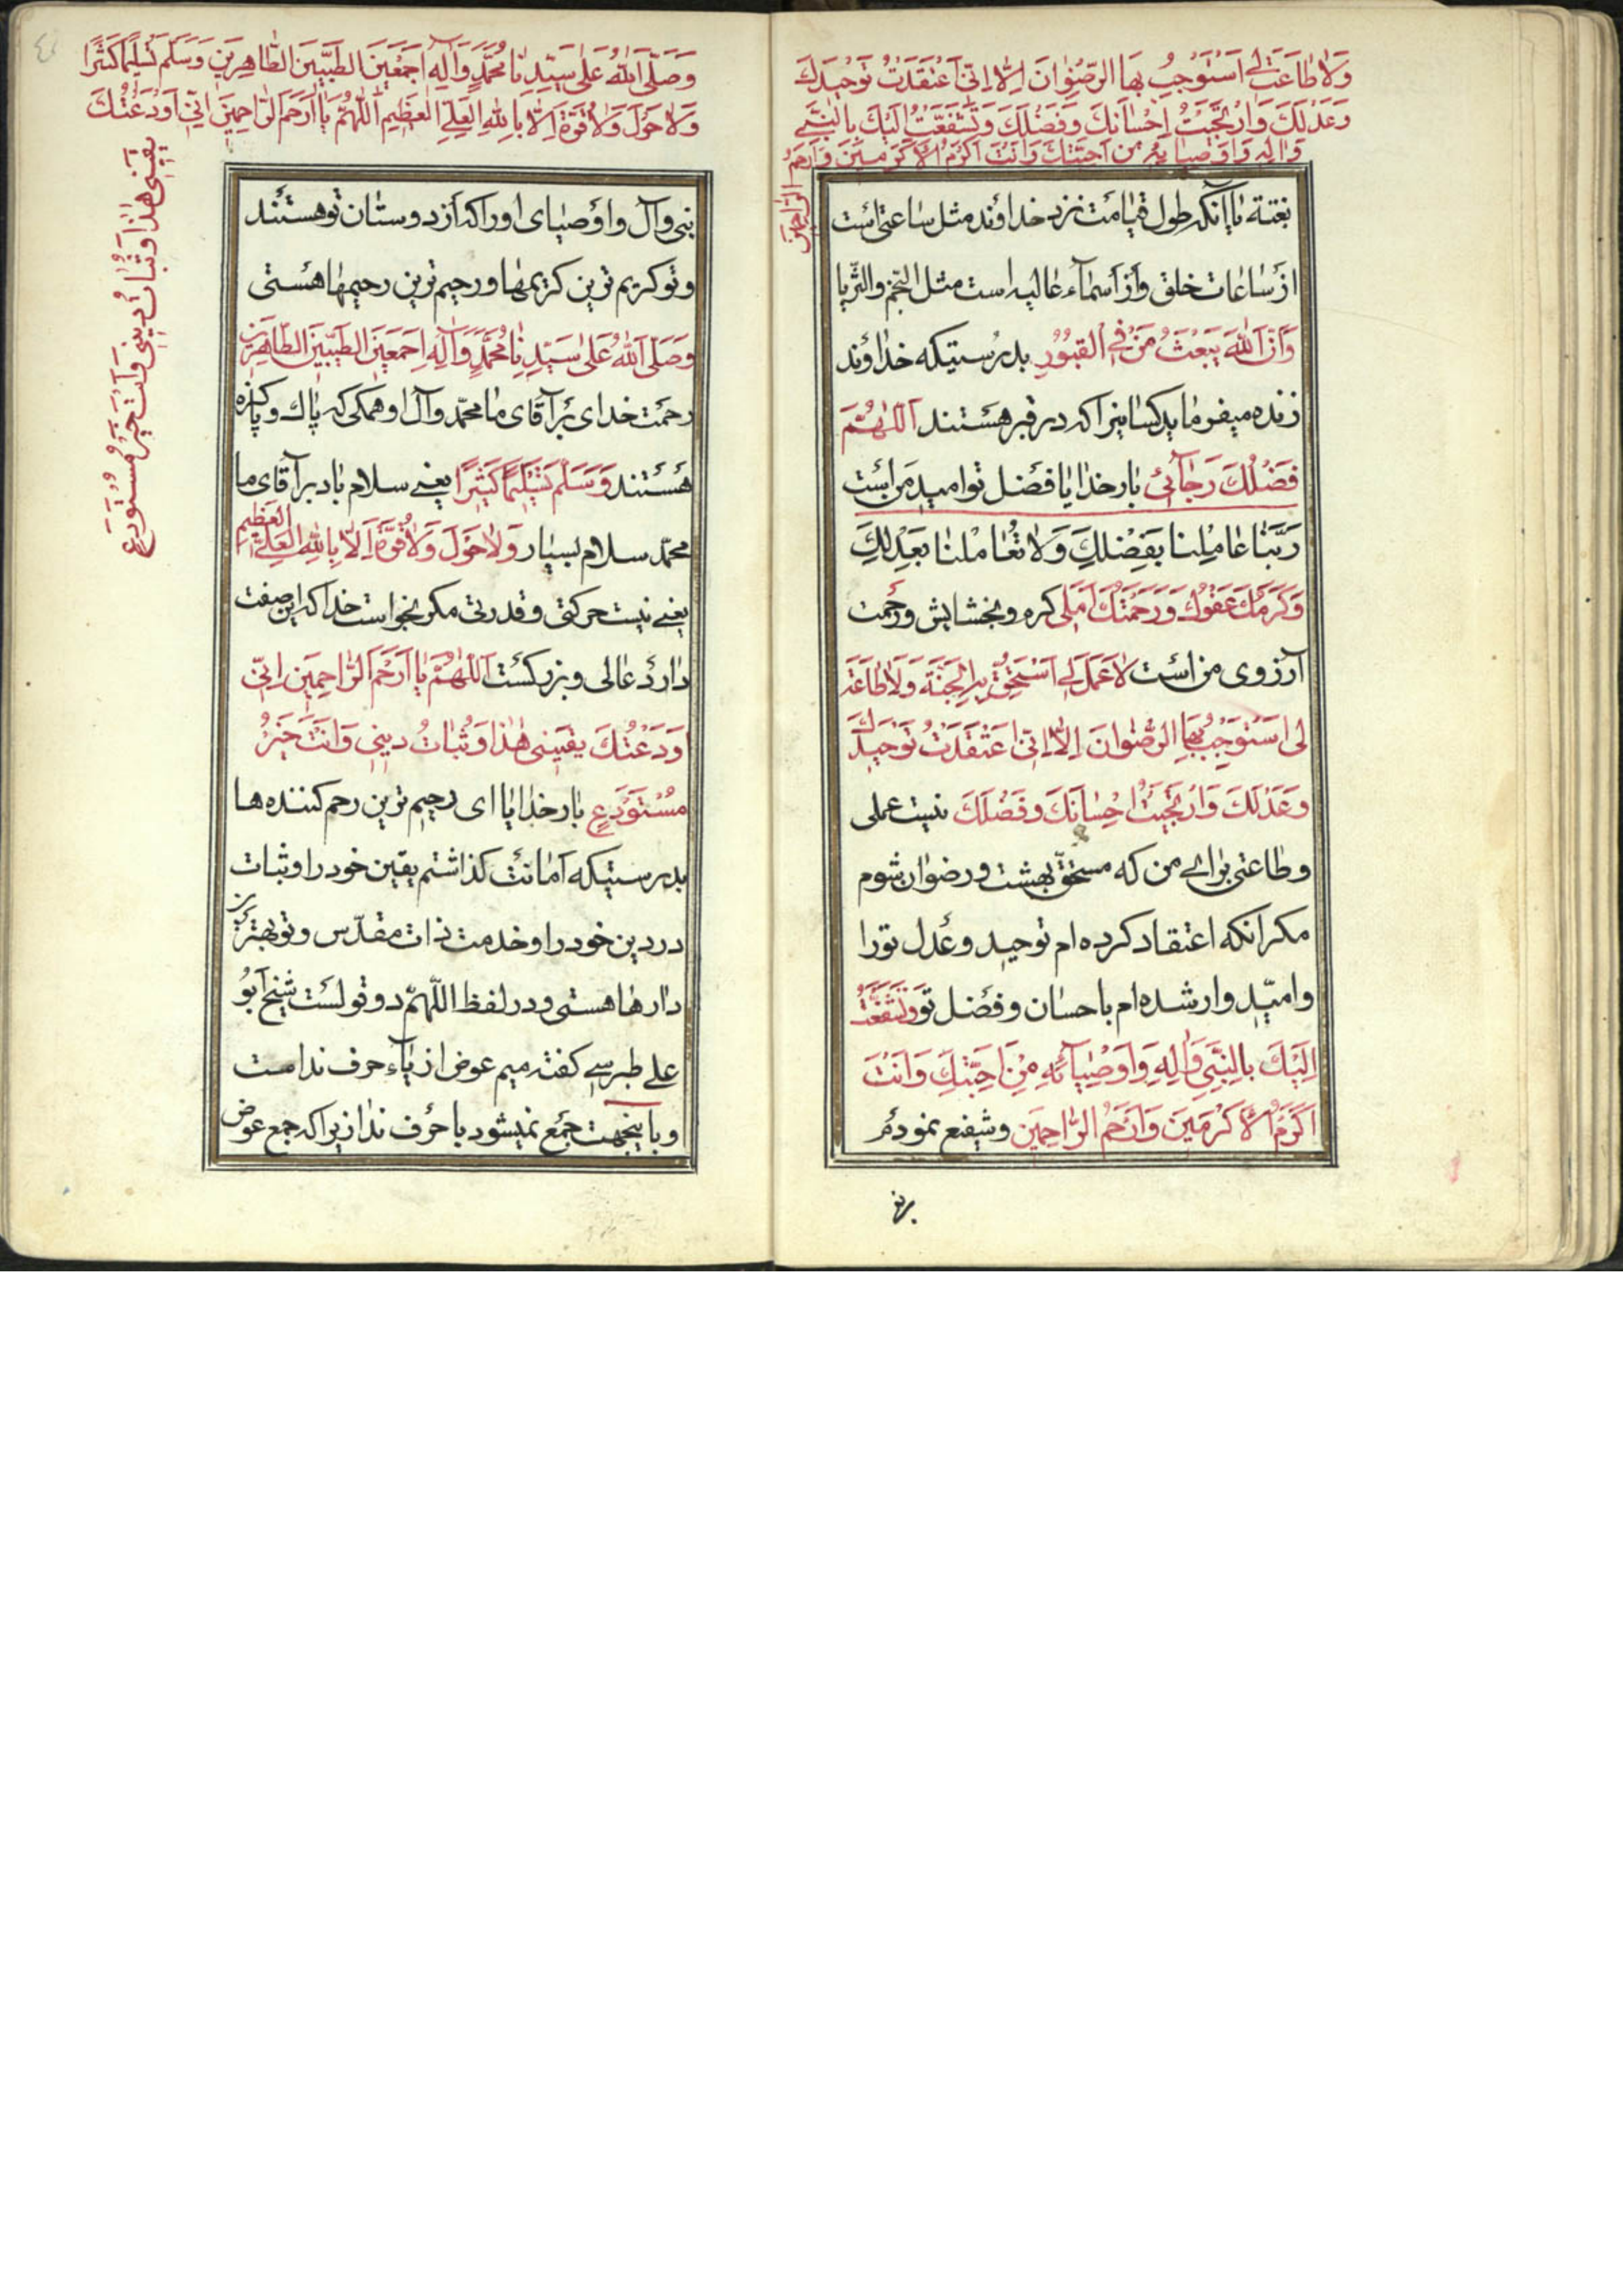 وَلاٰ طٰاعَتَ لِی اَسْتَوْجِبُ بِهَا الرِّضْوٰانَ اِلَّا اِنّی اَعْتَقَدْتُ تَوْحْیدَكَ
وَعَدْلَكَ وَارْتَجَیْتُ اِحْسٰانَكَ وَفَضْلَكَ وَتَشَفَّعْتُ اِلَیْكَ بِالنَّبِیِّ
وَاٰلِهِ وَاَوْصِیٰائِهِ مِنْ اَحِبَّتِكَ وَاَنْتَ اَکْرَمُ الْاَکْرَمینَ وَاَرْحَمُ
الرّٰاحِمینَ
بغتة باآنکه طول قیامت نزد خداوند مثل ساعتی است
از ساعات خلق واز أسمآء غالبه است مثل النّجم والثّریا
وَاَنَّ اللّٰهَ یَبْعَثُ مَنْ فِی الْقُبُوُرِ بدرستیکه خداوند
زنده میفرماید کسانیرا که در قبر هستند اَللّٰهُمَّ
فَضْلُكَ رَجٰآئی بار خدایا فضل تو امید من است
رَبَّنٰا عٰامِلْنا بِفَضْلِكَ وَلاٰ تُعٰامِلْنٰا بِعَدْلِكَ
وَکَرَمُكَ عَفْوُكَ وَرَحْمَتُكَ اَمَلی کره وبخشایش ورحمت
آرزوی من است لاٰ عَمَلَ لِی اَسْتَحِقُّ بِهِ الْجَنَّةَ وَلاٰ طٰاعَةَ
لی اَسْتَوْجِبُ بِهَا الرِّضْوٰانَ اِلَّا اِنّی اعْتَقَدْتُ تَوْحیدَكَ
وَعَدْلَكَ وَارْتَجَیْتُ اِحْسٰانَكَ وَفَضْلَكَ نیست عملی
وطاعتی برای من که مستحقّ بهشت ورضوان شوم
مکر انکه اعتقاد کرده ام توحید وعدل تورا
وامیّد وار شده ام باحسان وفضل تو وَتَشَفَّعْتُ
اِلَیْكَ بِالنَّبِیِّ وَاٰلِهِ وَاَوْصِیٰآئِهِ مِنْ اَحِبَّتِكَ وَاَنْتَ
اَکْرَمُ الْاَکْرَمینَ وَاَرْحَمُ الرّٰاحِمینَ وشیفع نمودم
وَصَلَّی اللّٰهُ عَلٰی سَیِّدِنٰا مُحَمَّدٍ وَآلِهِ اَجْمَعینَ الطَّیِّبینَ الطّٰاهِرینَ وَسَلَّمَ تَسْلیمًا کَثیرًا
وَلاٰ حَوْلَ وَلاٰ قُوَّةَ اِلَّا بِاللّٰهِ الْعَلِیِّ الْعَظیمِ اَللّٰهُمَّ یٰا اَرْحَمَ الرّٰاحِمینَ اِنّی اَوْدَعْتُكَ
یَقینی هٰذا وَثَبٰاتَ دینی وَاَنْتَ خَیْرُ مُسْتَوْدَعٍ
نبی وآل واوصیای اورا که از دوستان تو هستند
وتو کریم ترین کریمها ورحیم ترین رحیمها هستی
وَصَلَّی اللّٰهُ عَلٰی سَیِّدِنٰا مُحَمَّدٍ وَآلِهِ اَجْمَعینَ الطَّیِّبینَ الطّٰاهِرینَ
رحمت خدای بر آقای ما محمّد وآل او همکی که پاك وپاکیزه
هستند وَسَلَّمَ تَسْلیمًا کَثیرًا یعنی سلام باد بر آقای ما
محمّد سلام بسیار وَلاٰ حَوْلَ وَلاٰ قُوَّةَ اِلَّا بِاللّٰهِ الْعَلِیِّ الْعَظیمِ
یعنی نیست حرکتی وقدرتی مکر بخواست خدا که این صفت
دارد عالی وبزرکست اَللّٰهُمَّ یٰا اَرْحَمَ الرّٰاحِمینَ اِنّی
اوَدَعْتُكَ یَقینی هٰذا وَثَبٰاتُ دینی وَاَنْتَ خَیْرُ
مُسْتَوْدَعٍ بار خدایا ای رحیم ترین رحم کننده ها
بدرستیکه امانت کذاشتم یقین خود را وثبات
در دین خود را وخدمت ذات مقدّس وتو بهترین
دارها هستی ودر لفظ اللّهمّ دو قولست شیخ ابو
علی طبرسی کفته میم عوض از یآء حرف نداست
وباینجهت جمع نمیشود با حرف ندا زیرا که جمع عوض